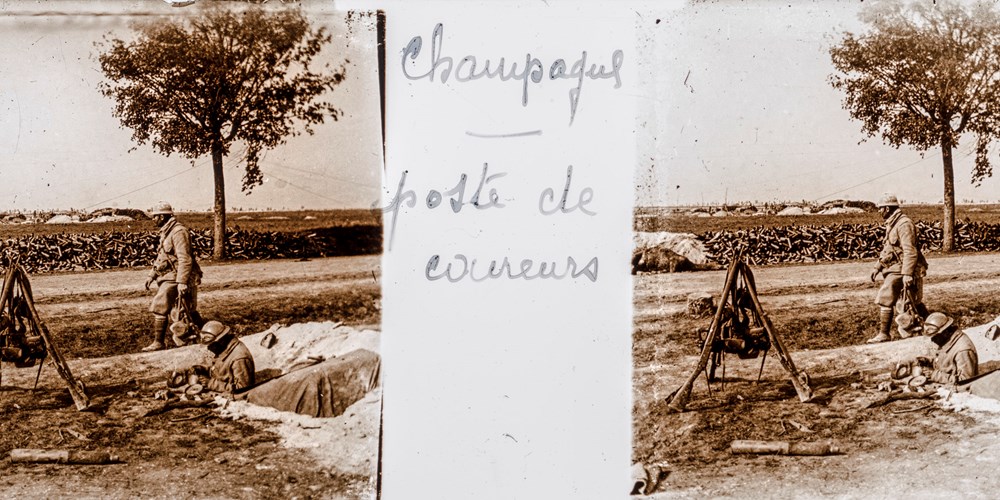 Champagne
poste de
coureurs